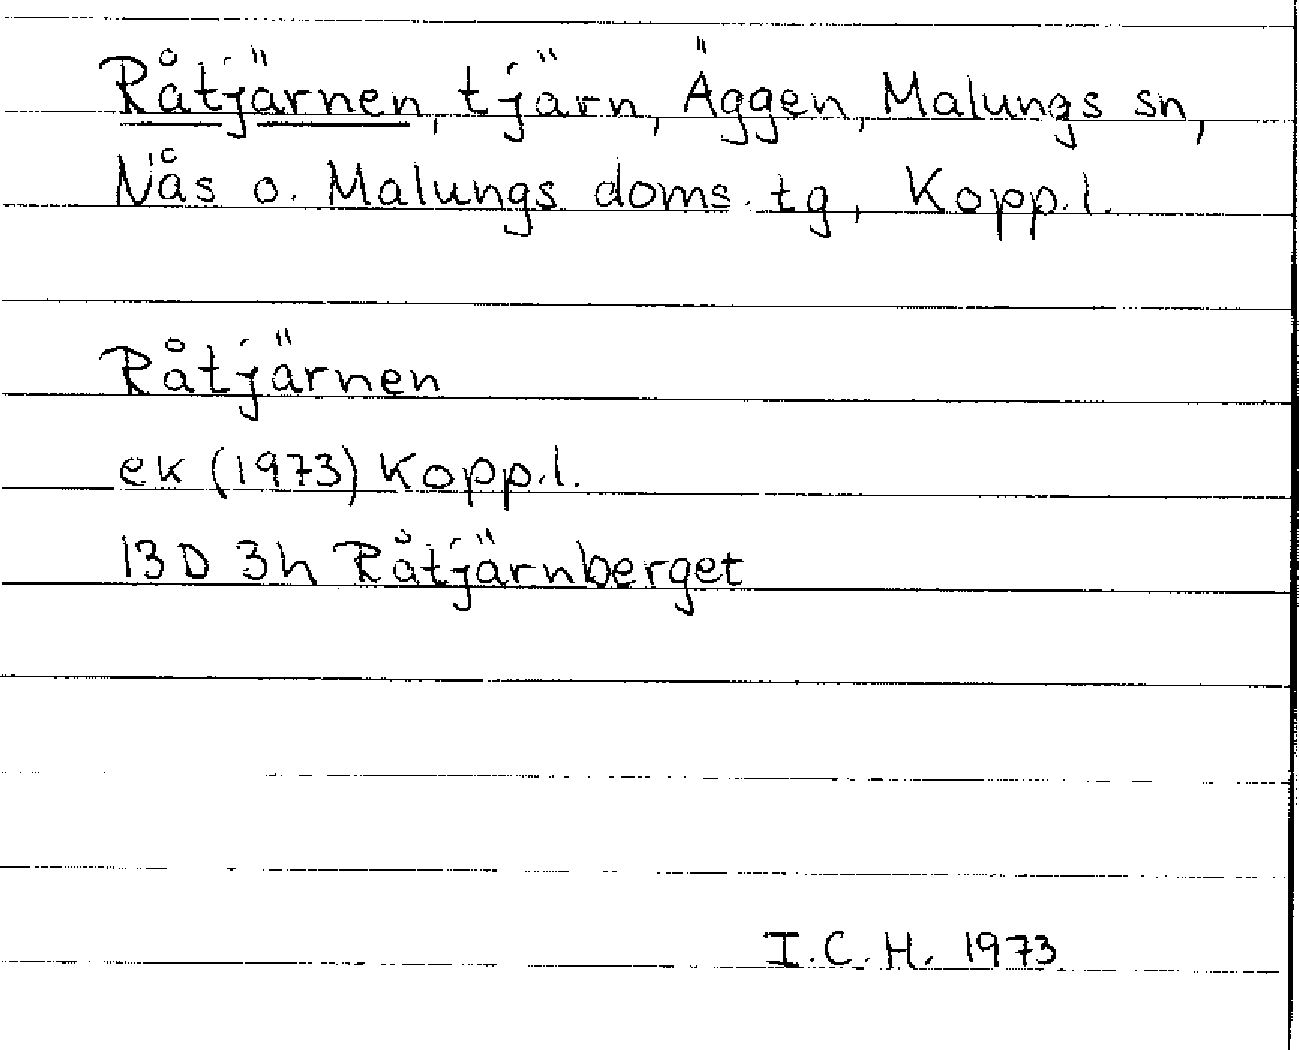 Råtjärnen, tjärn, Äggen, Malungs sn,
Nås o. Malungs doms. tg, Kopp.l.
Råtjärnen
ek (1973) Kopp.l.
13 D 3h Råtjärnberget
I.C.H. 1973